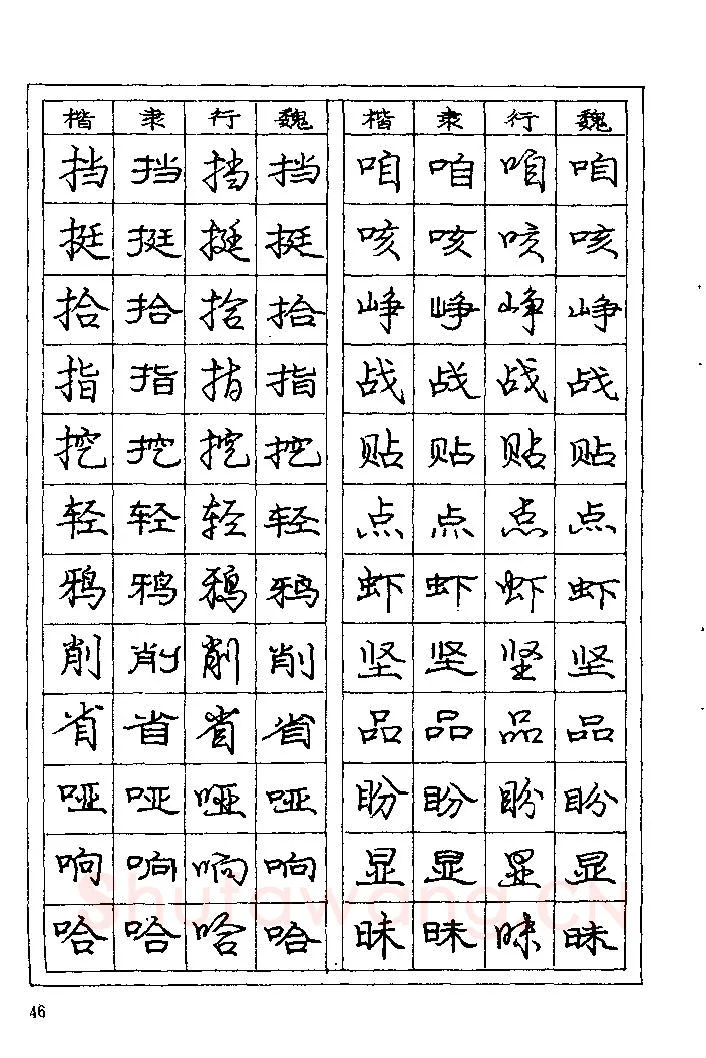 楷 隶 行 魏 楷 隶 行 魏
挡 挡 挡 挡 咱 咱 咱 咱
挺 挺 挺 挺 咳 咳 咳 咳
拾 拾 拾 拾 峥 峥 峥 峥
指 指 指 指 战 战 战 战
挖 挖 挖 挖 贴 贴 贴 贴
轻 轻 轻 轻 点 点 点 点
鸦 鸦 鸦 鸦 虾 虾 虾 虾
削 削 削 削 坚 坚 坚 坚
省 省 省 省 品 品 品 品
哑 哑 哑 哑 盼 盼 盼 盼
响 响 响 响 显 显 显 显
Shufawang.CN
哈 哈 哈 哈 昧 昧 昧 昧
46